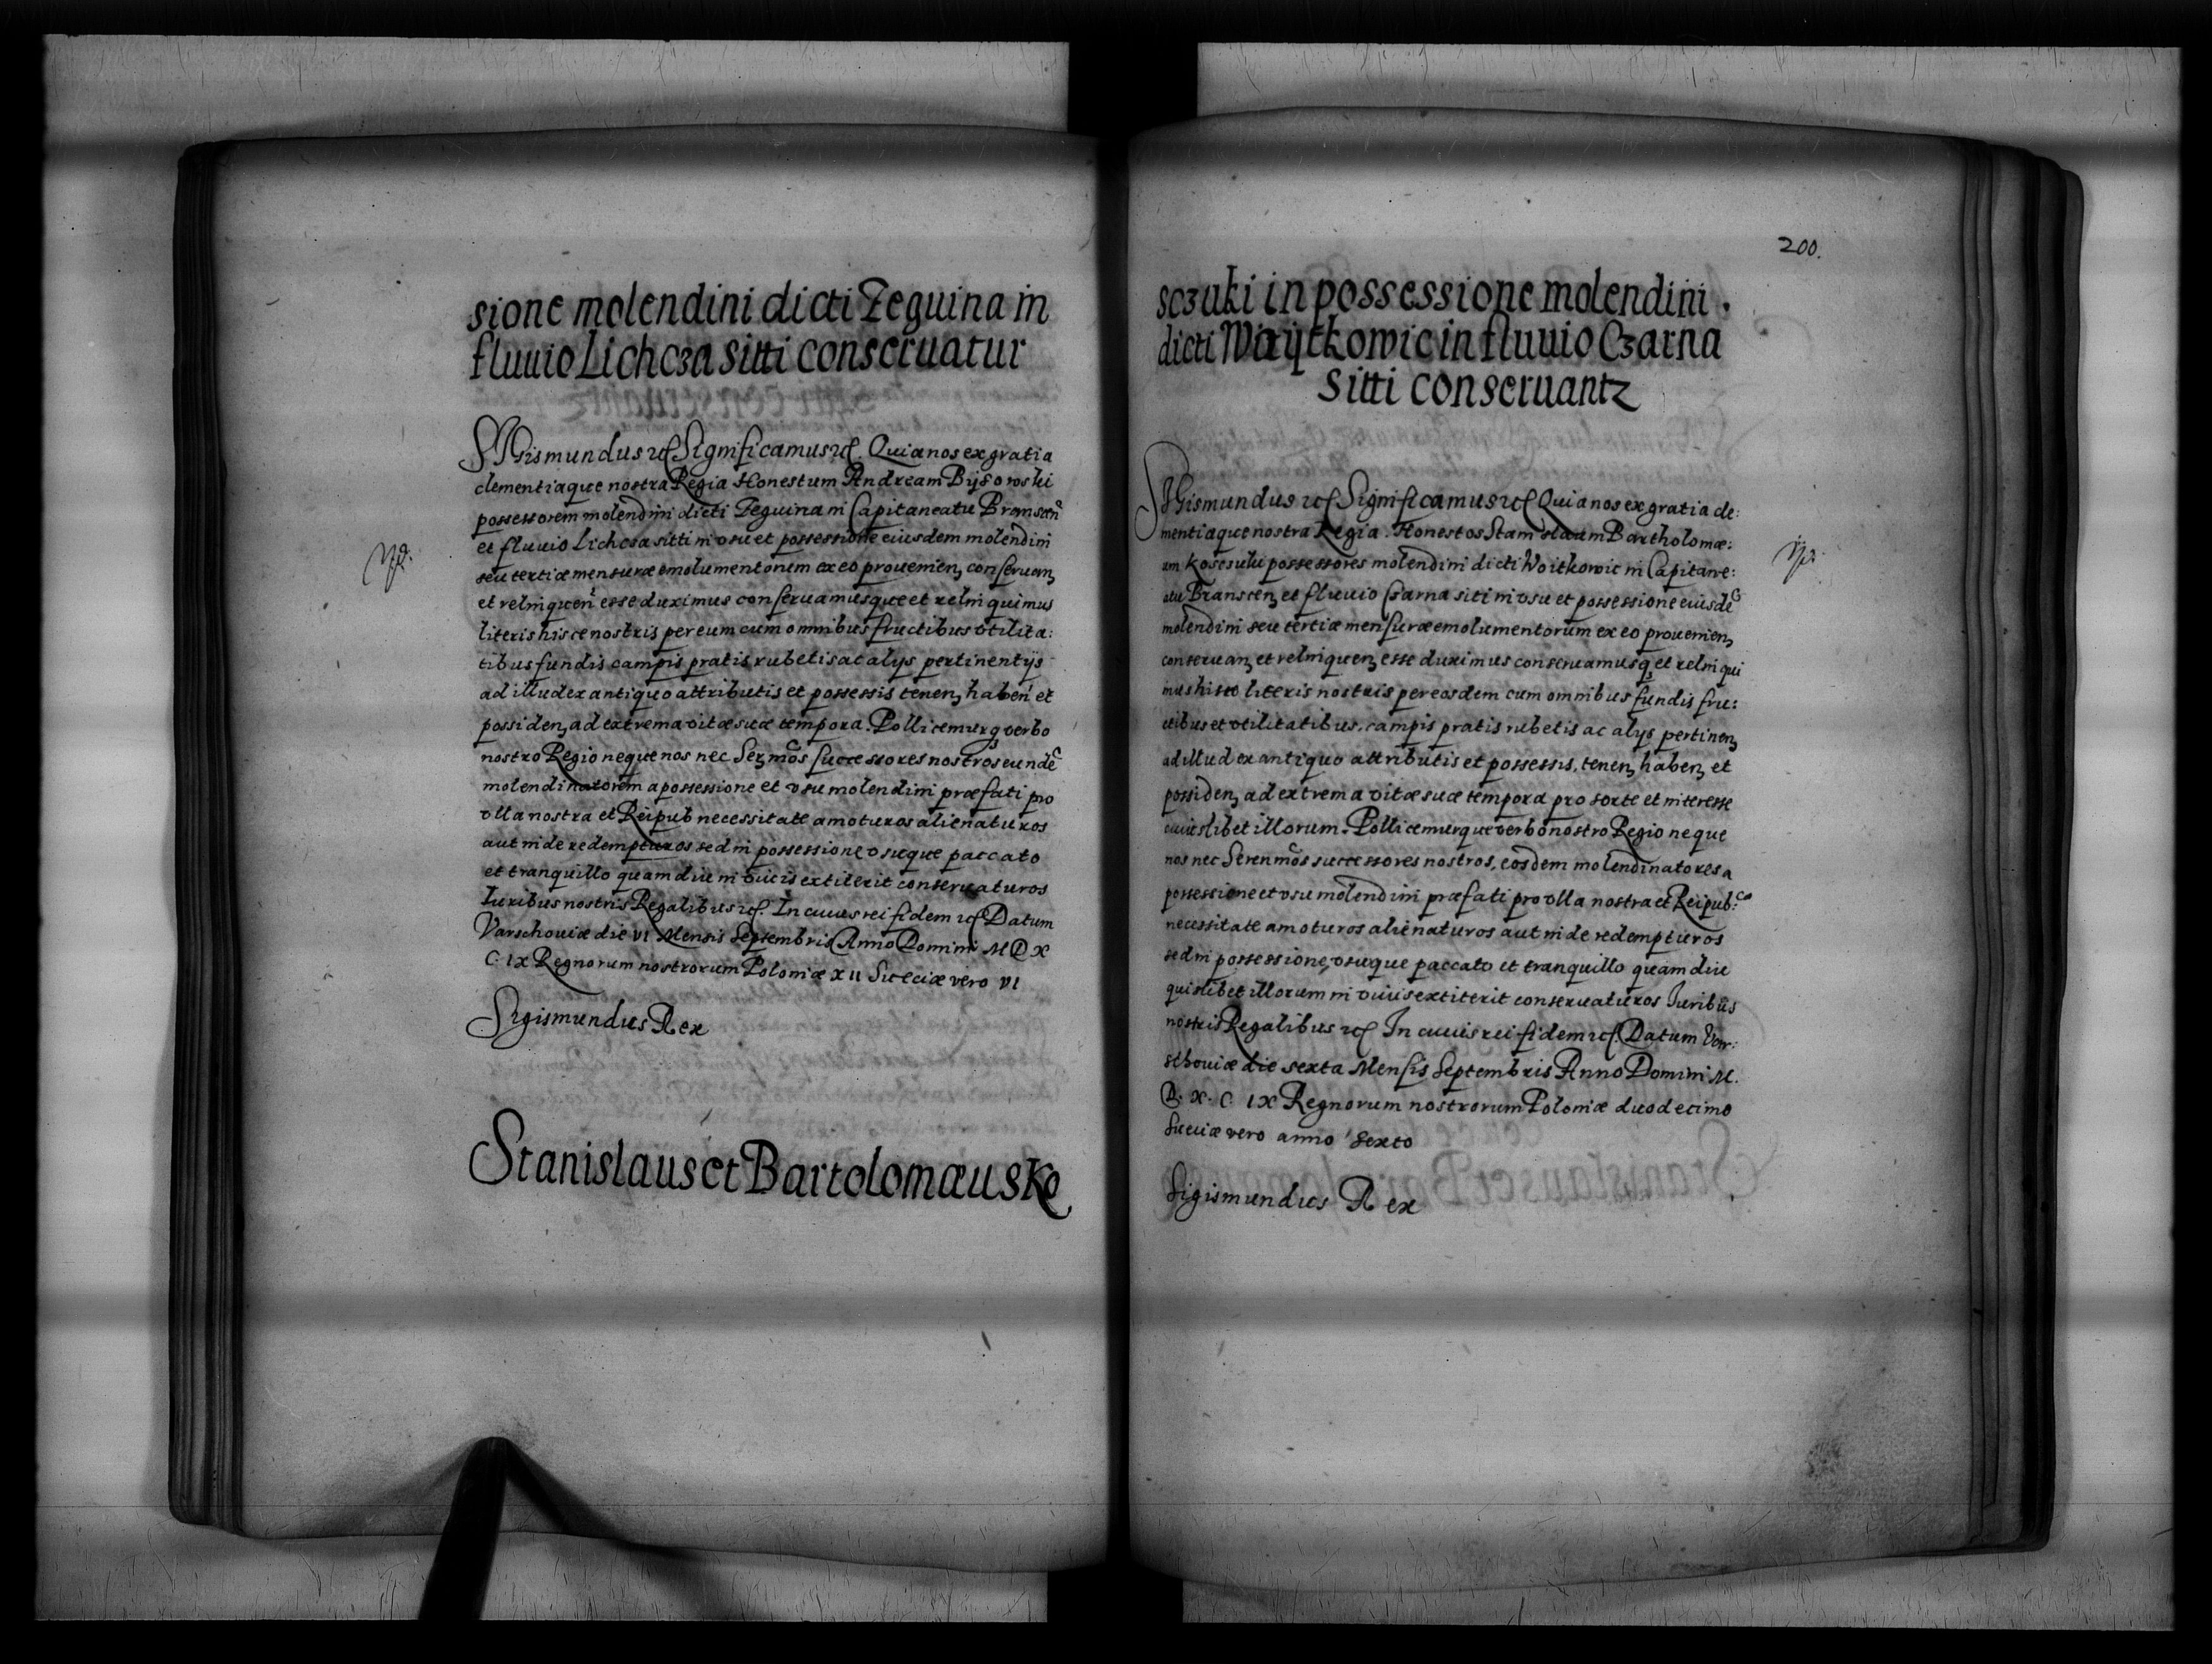 sione molendini dicti Zeguina in
fluuio Lichcza sitti conseruatur
Sigismundus etc Significamus etc. Quia nos ex gratia
clementiaque nostra Regia Honestum Andream
possessorem molendini dicti Zeguina in Capitaneatu
et fluuio Lichcza sitti in vsu et possessione eiusdem molendini
seu tertiæ mensuræ emolumentorum ex eo prouenien, conseruan,
et relinquen esse duximus conseruamusque et relinquimus
literis hisce nostris per eum cum omnibus fructibus vtilita:
tibus fundis campis pratis rubetis ac alys pertinentÿs
ad illud ex antiquo attributis et possessis tenen, haben et
possiden, ad extrema vitæ suæ tempora. Pollicemurq verbo
nostro Regio neque nos nec Ser,mos successores nostros eundē
molendinatorem a possessione et vsu molendini præfati pro
vlla nostra et Reipub necessitate amoturos alienaturos
aut inde redempturos sed in possessione vsuque paccato
et tranquillo quamdiu in viuis extiterit conseruaturos
Iuribus nostris Regalibus etc. In cuius rei fidem etc Datum
Varschouiæ die VI Mensis Septembris Anno Domini M D X
C IX Regnorum nostrorum Poloniæ XII Sueciæ vero VI
Sigismundus Rex
Stanislaus et Bartolomæus Ko
200.
sczuki in possessione molendini
dicti Woÿtkowic in fluuio Czarna
sitti conseruantz
Sigismundus etc Significamus etc Quia nos ex gratia cle:
mentiaque nostra Regia. Honestos Stanislaum Bartholomæ:
um Kosczuki possessores molendini dicti Woitkowic in Capitane:
atu Branscen, et fluuio Czarna siti in vsu et possessione eiusdē
molendini seu tertiæ mensuræ emolumentorum ex eo prouenien,
conseruan, et relinquen, esse duximus conseruamusq et relinqui
mus hisce literis nostris per eosdem cum omnibus fundis fru:
ctibus et vtilitatibus, campis pratis rubetis ac alys pertinen,
ad illud ex antiquo attributis et possessis, tenen, haben, et
possiden, ad extrema vitæ suæ tempora pro sorte et interesse
cuiuslibet illorum. Pollicemurque verbo nostro Regio neque
nos nec Serenmos successores nostros, eosdem molendinatores a
possessione et vsu molendini præfati pro vlla nostra et Reipub:cæ
necessitate amoturos alienaturos aut inde redempturos
sed in possessione, vsuque paccato et tranquillo quamdiu
quislibet illorum in viuis extiterit conseruaturos Iuribus
nostris Regalibus etc In cuius rei fidem etc. Datum Var:
schouiæ die sexta Mensis Septembris Anno Domini M.
D. X. C IX Regnorum nostrorum Poloniæ duodecimo
Sueciæ vero anno sexto
Sigismundus Rex